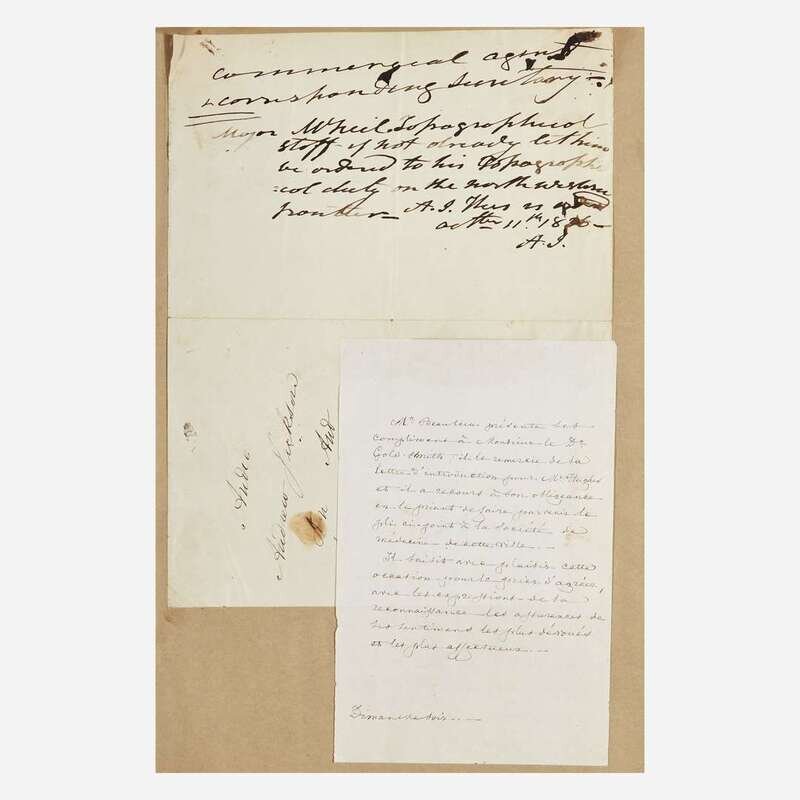 commercial agent
& corresponding Secretary =
Major McNeil Topographical
staff if not already let him
be ordered to his Topographi
=cal duty on the north western
frontier A.J. This is
octbr 11th 18
A.J.
Andrew
Andrew Jackson
And
An
Mr. présente ses
compliment à Monsieur le Dr
Gold-Smith, il le remercie de la
lettre d'introduction pour Mr. Hughes
et il a recours à son obligeance
en le priant de faire parvenir le
pli ci-joint à la Société de
médecine de cette ville.--
Il saisit avec plaisir cette
occasion pour le prier d'agréer,
avec les expressions de la
reconnaissance les assurances de
ses sentimens les plus dévoués
et les plus affectueux.--
Dimanche soir.--